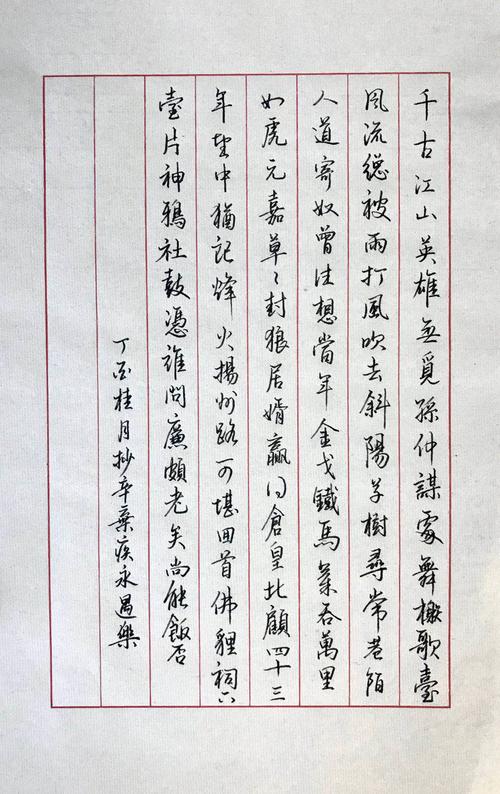 千古江山英雄無覓孫仲謀處舞榭歌臺
風流總被雨打風吹去斜陽草樹尋常巷陌
人道寄奴曾住想當年金戈鐵馬氣吞萬里
如虎元嘉草〻封狼居婿贏得倉皇北顧四十三
年望中猶記烽火揚州路可堪回首佛貍祠下
壹片神鴉社鼓憑誰問廉頗老矣尚能飯否
丁酉桂月抄辛棄疾永遇樂